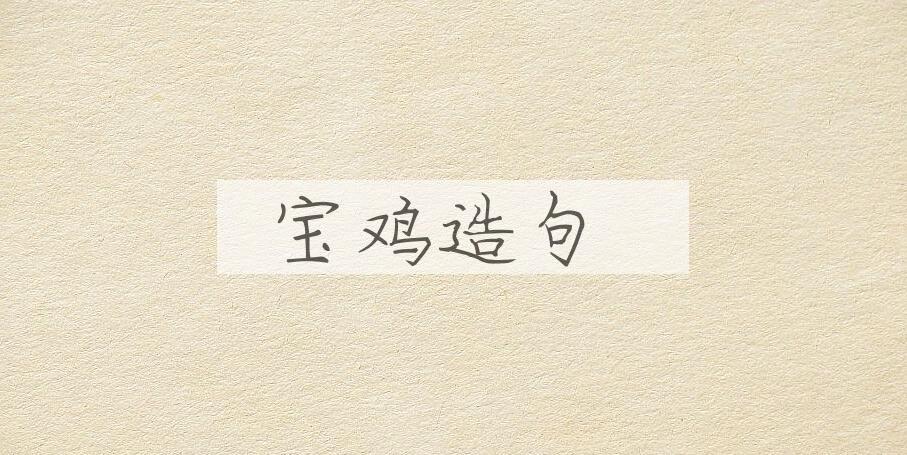 宝鸡造句